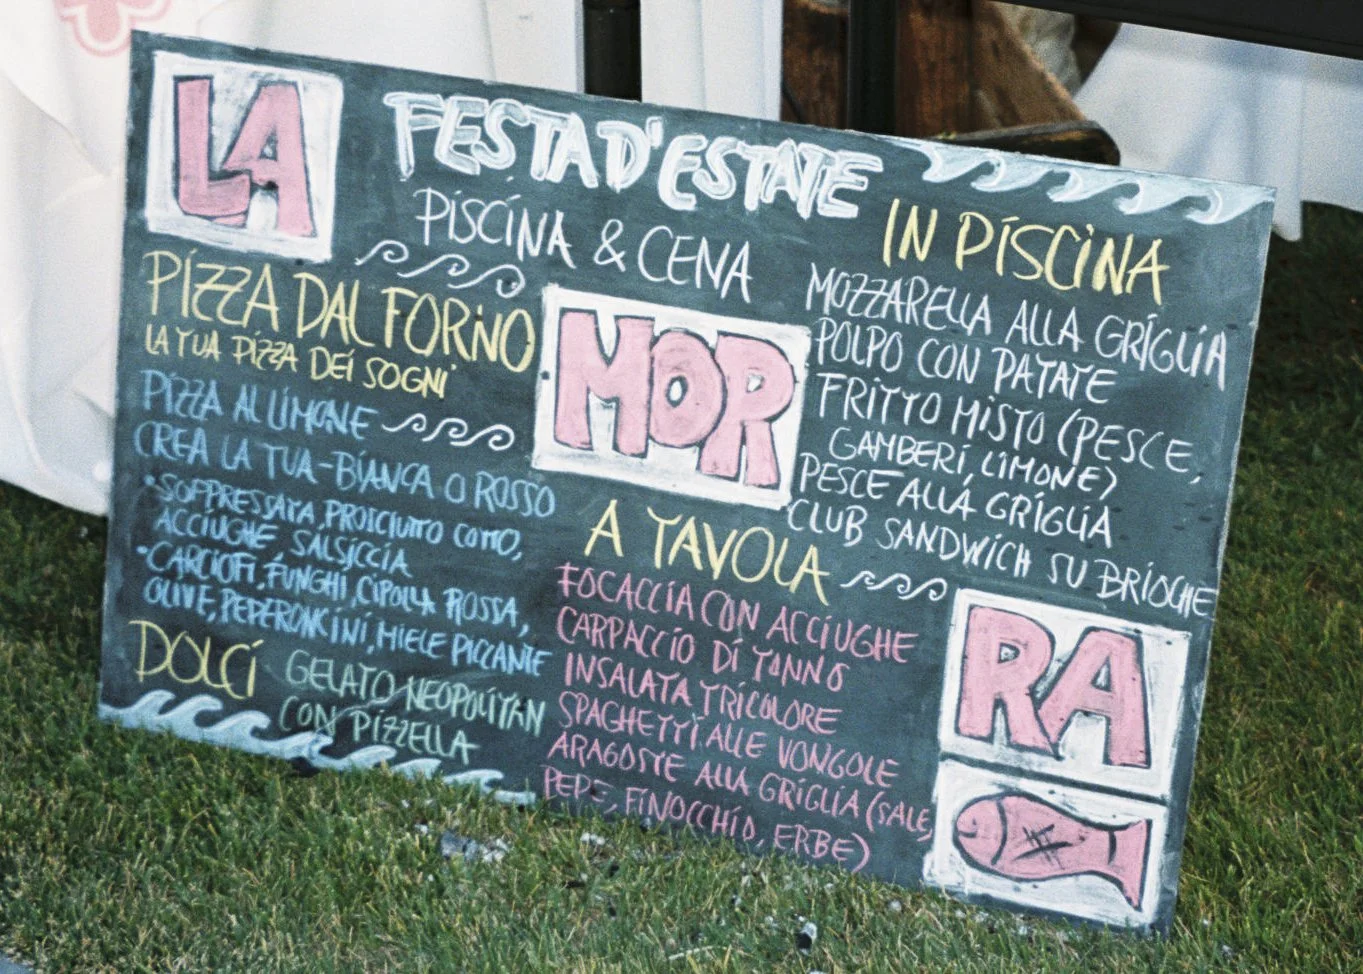 LA
FESTA D'ESTATE
PISCINA & CENA
PIZZA DAL FORNO
LA TUA PIZZA DEI SOGNI
PIZZA AL LIMONE
CREA LA TUA-BIANCA O ROSSO
•SOPPRESSATA, PROSCIUTTO COTTO,
ACCIUGHE, SALSICCIA
•CARCIOFI, FUNGHI, CIPOLLA ROSSA,
OLIVE, PEPERONCINI, MIELE PICCANTE
DOLCI
GELATO NEOPOLITAN
CON PIZZELLA
MOR
IN PISCINA
MOZZARELLA ALLA GRIGLIA
POLPO CON PATATE
FRITTO MISTO (PESCE,
GAMBERI, LIMONE)
PESCE ALLA GRIGLIA
CLUB SANDWICH SU BRIOCHE
A TAVOLA
FOCACCIA CON ACCIUGHE
CARPACCIO DI TONNO
INSALATA TRICOLORE
SPAGHETTI ALLE VONGOLE
ARAGOSTE ALLA GRIGLIA (SALE,
PEPE, FINOCCHIO, ERBE)
RA